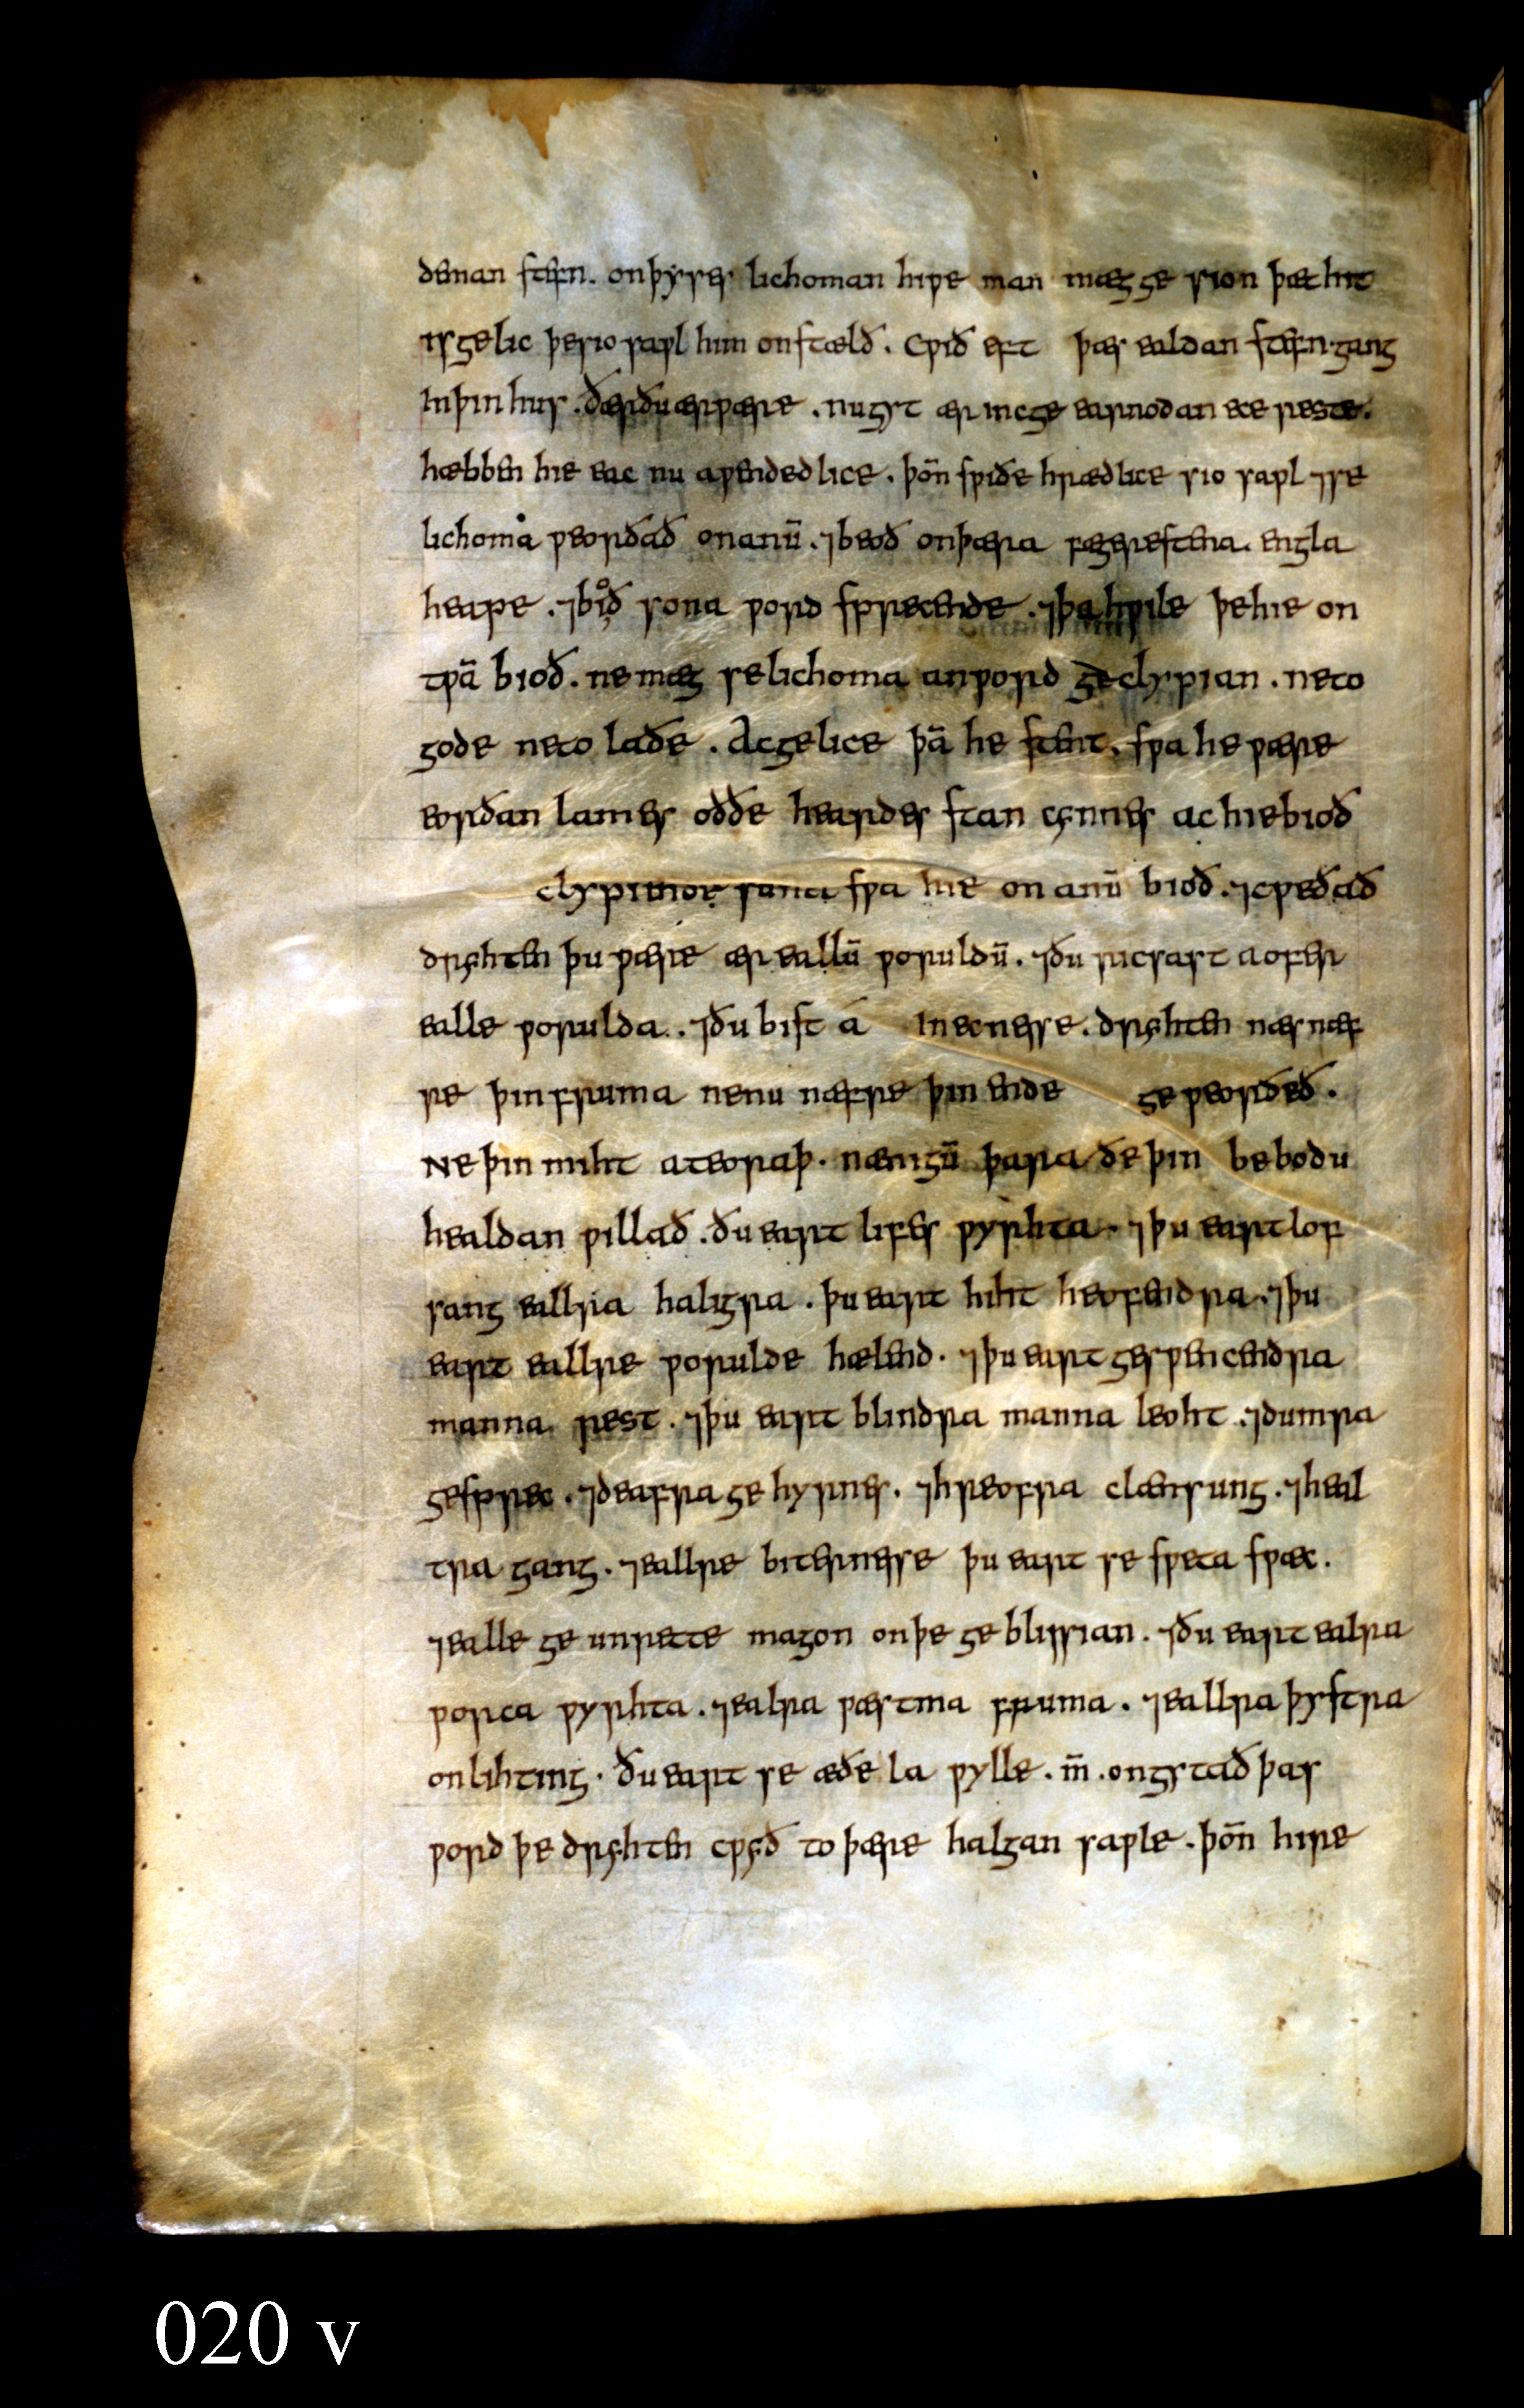 deman stefn. onþysses lichoman hiƿe man mæg ge sion þæt hit
is gelic þe sio saƿl him onstælð. Cƿið eft þæs ealdan stefn. gang
in þin hus. ðær ðu ær ƿære. nu gyt ær inc ge earnodan ece reste.
hæbben hie eac nu aƿendedlice. þoñ sƿiðe hrædlice sio saƿl ⁊ se
lichoma ƿeorðað on anū. ⁊ beoð on þæra fægerestena engla
heape. ⁊ bioð sona ƿord sprecende. ⁊ þa hƿile þe hie on
tƿā bioð. ne mæg se lichoma an ƿord ge clypian. ne to
gode ne to laðe. Ac gelice þā he stent. sƿa he ƿære
eorðan lames oððe heardes stan cynnes ac hie bioð
clypiende sona sƿa hie on anū bioð. ⁊ cƿeðað
dryhten þu ƿære ær eallū ƿoruldū. ⁊ ðu ricsast a ofer
ealle ƿorulda. ⁊ ðu bist á in ecnesse. dryhten næs næf
re þin fruma ne nu næfre þin ende ge ƿeorðeð.
Ne þin miht ateoraþ. nænigū þara ðe þin bebodu
healdan ƿillað. ðu eart lifes ƿyrhta. ⁊ þu eart lof
sang eallra haligra. þu eart hiht heofendra. ⁊ þu
eart eallre ƿorulde hælend. ⁊ þu eart gesƿencendra
manna rest. ⁊ þu eart blindra manna leoht. ⁊ dumra
gesprec. ⁊ deafra ge hyrnes. ⁊ hreofra clænsung. ⁊ heal
tra gang. ⁊ eallre biternesse þu eart se sƿeta sƿæc.
⁊ ealle ge unrette magon on þe ge blissian. ⁊ ðu eart ealra
ƿorca ƿyrhta. ⁊ ealra ƿæstma fruma. ⁊ eallra þystra
onlihting. ðu eart se æðe la ƿylle. m̄. ongytað þas
ƿord þe dryhten cƿyð to þære halgan saƿle. þoñ hire
020 v